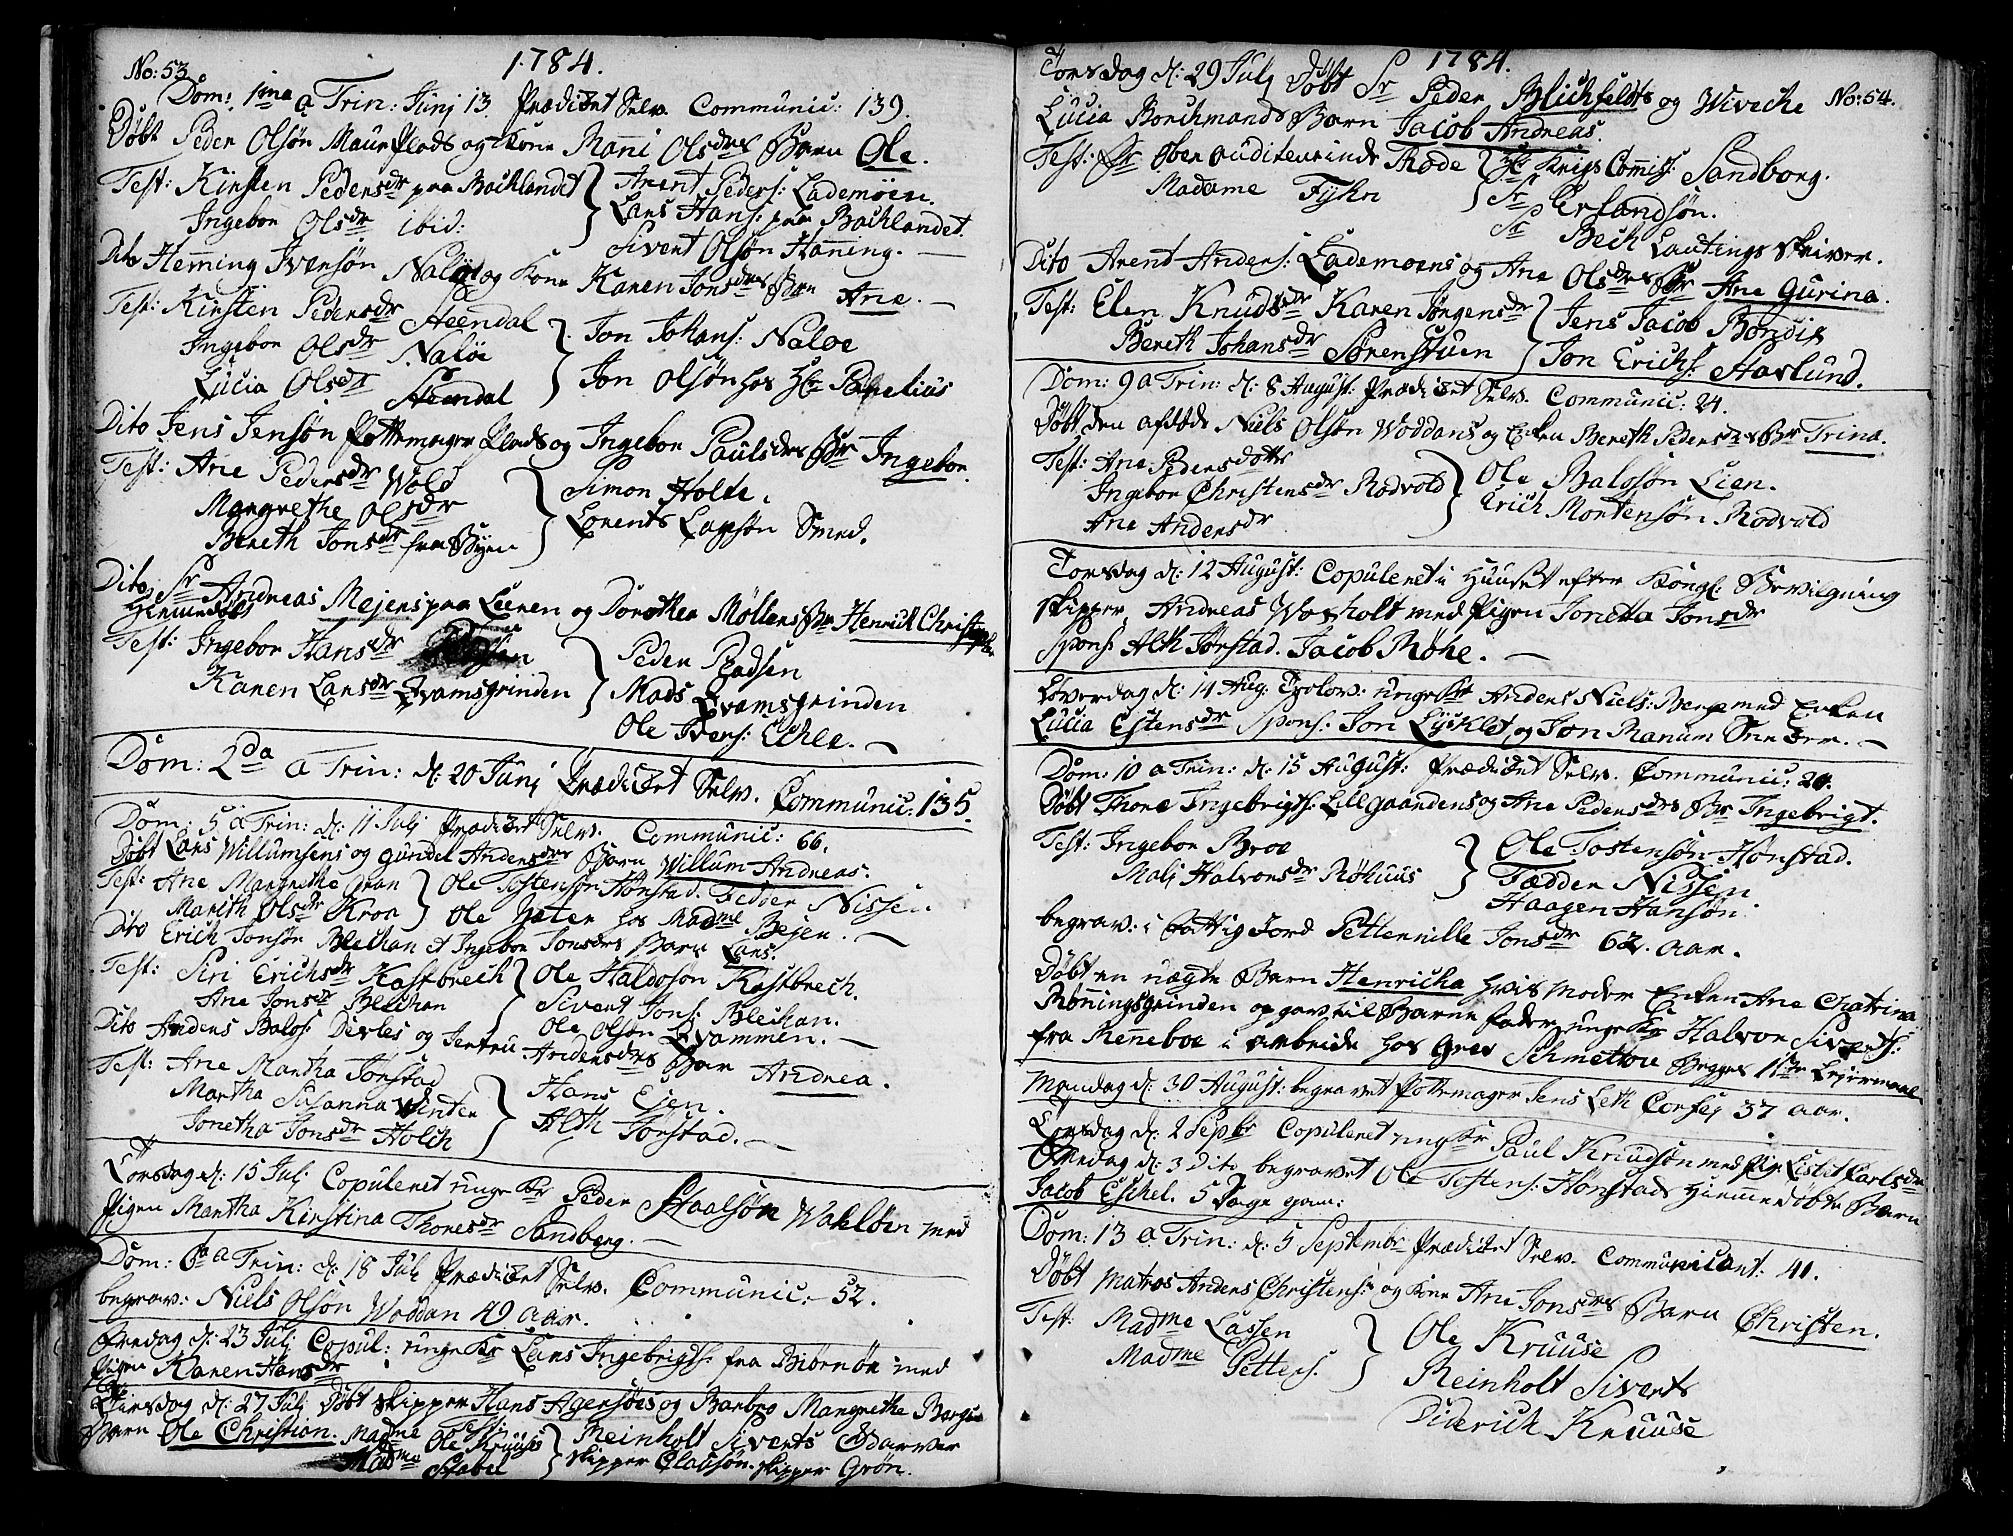 No: 53
1784.
Dom: 1ma a Trin: Junj 13. Prædicet Selv. Communic: 139.
Døbt Peder Olsøn Maur Plads og Kone Mari Olsdrs Barn Ole.
Test: Kirsten Pedersdr paa Bachlandet } Arent Peders: Lademoen.
Ingebor Olsdr ibid: Lars Hans: paa Bachlandet.
Sivert Olsøn Haning.
Dito Heming Iversøn Naløe og Kone Karen Jonsdrs Brn Ane.
Test: Kirsten Pedersdr Steendal
Ingebor Olsdr Naløe } Jon Johans: Naloe
Lucia Olsdr Steendal Jon Olsøn hos Hr Parelius
Dito Jens Jensøn Pottemager Plads og Ingebor Paulsdrs Br Ingebor.
Test: Ane Pedersdr Wold } Simon Holte.
Margrethe Olsdr Lorents Larsøn Smed.
Bereth Jonsdr fra Byen
Dito Sr Andreas Mejers paa Leeren og Dorothea Møllers Br Henrich Christopher
Hiemedøbt
Test: Ingebor Hansdr } Peder Radsen
Karen Larsdr Qvamsgrinden Mads Qvamsgrinden
Ole Ivers: Echle.
Dom: 2da a Trin: d: 20 Junj Prædicet Selv. Communic. 135.
Dom: 5 a Trin: d: 11 Julj Prædicet Selv. Communic: 66.
Døbt Lars Willumsens og Gundel Andersdrs Barn Willum Andreas.
Test: Ane Margrethe Gran } Ole Tostensøn Hønstad. Fedder Nissen.
Marith Olsdr Kroa Ole hos Madme Bejer.
Dito Erich Jonsøn Blechan et Ingebor Jonsdrs Barn Lars.
Test: Siri Erichsdr Kastbrech } Ole Haldoson Kastbrech.
Ane Jonsdr Blechan Sivert Jons: Blechan.
Ole Olson Qvammen.
Dito Anders Balos: Devles og Jertru Andersdrs Barn Andrea.
Test: Ane Martha Jørstad } Hans Ejen.
Martha Susanna Winter Alth Jørstad.
Jonetha Jonsdr Holch
Torsdag d: 15 Julj Copuleret unge Kr Peder Staalsøn Wahløen med
Pigen Martha Kirstina Thoresdr Sandberg.
Dom: 6ta a Trin: d: 18 Julj Prædicet Selv. Communic: 52.
begrav: Niels Olsøn Woddan 49 aar.
Fredag d: 23 Julj Copul: unge Kr Lars Ingebrigts: fra Biørnør med
Pigen Karen Hansdr
Tirsdag d: 27 Julj Døbt Skipper Hans Agersøes og Barbro Margrethe
Barn Ole Christian. Test: Madme Ole Kruuse } Reinholt Siverts
Madme Stabel Skipper Clausøn. Skipper Grøn.
1784.
No: 54.
Torsdag d: 29 Julj Døbt Sr Peder Blichfeldts og Wiveche
Lucia Borchmands Barn Jacob Andreas.
Test: Fr Ober Auditeurinde Rode } Hr Krigs Comiss: Sandborg.
Madame Fyhn Sr Erlandsøn.
Sr Bech Laugtings Skriver.
Dito Arent Anders: Lademoens og Ane Olsdrs Br Ane Gurina.
Test: Elen Knudsdr Karen Jørgensdr } Jens Jacob Bondis
Bereth Johansdr Sørenstuen Jon Erichs: Havlund.
Dom: 9 a Trin: d: 8 August: Prædicet Selv. Communic: 24.
Døbt den afdøde Niels Olsøn Woddans og Enken Bereth Pedersdrs Br Trina.
Test: Ane Pedersdotter
Ingebor Christensdr Rodvold } Ole Balosøn Lien.
Ane Andersdr Erich Mortensøn Rodvold
Torsdag d: 12 August: Copuleret i Huuset efter Kongl: Bevilgning
Skipper Andreas Woxholt med Pigen Jonetta Jonsdr
Spons: Alth Jørstad. Jacob Røhe.
Løverdag d: 14 Aug: Trolov: unge Kr Anders Niels: Berge med Enken
Lucia Estensdr Spons: Jon Lychlet og Jon Ranum Sneder.
Dom: 10 a Trin: d: 15 August: Prædicet Selv. Communic: 20.
Døbt Thore Ingebrigts: Lillgaardens og Ane Pedersdrs Br Ingebrigt.
Test: Ingebor Broe } Ole Tostensøn Hønstad.
Malj Halvorsdr Røhuus Fædder Nissen
Haagen Hansøn.
begrav: i Fattig Jord Petternille Jonsdr 62. aar.
Døbt en uægte Barn Henricha hvis moder Enken Ane Chatrina
Rønningsgrinden opgav til Barne fader unge Kr Halvor Siverts:
fra Renneboe i arbeide hos Grev Schmettou Begges 1ste Lejermaal
Mandag d: 30 August: begravet Pottemager Jens Leth Corsej 37 aar.
Torsdag d: 2 Sepbr Copuleret ung Kr Paul Knudsøn med Pige Lisbet Carlsdr
Fredag d: 3 Dito begravet Ole Tostens: Hønstads Hieme Døbte Barn
Jacob Eschel. 5 Dage gam:
Dom: 13 a Trin: d: 5 Septembr Prædicet Selv. Communicant: 41.
Døbt Matros Anders Christens: og Kone Ane Jonsdrs Barn Christen.
Test: Madme Lassen } Ole Kruuse
Madme Petters. Reinholt Siverts
Diderich Kruuse